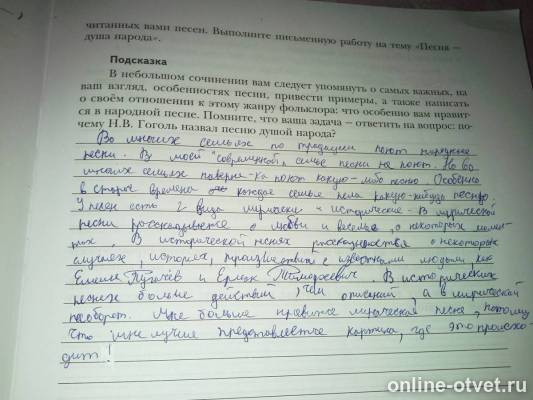 читанных вами песен. Выполните письменную работу на тему «Песня —
душа народа».
Подсказка
В небольшом сочинении вам следует упомянуть о самых важных, на
ваш взгляд, особенностях песни, привести примеры, а также написать
о своём отношении к этому жанру фольклора: что особенно вам нравит-
ся в народной песне. Помните, что ваша задача — ответить на вопрос: по-
чему Н.В. Гоголь назвал песню душой народа?
Во многих семьях по традиции поют народные
песни. В моей "современной" семье песни не поют. Но во
многих семьях наверня-ка поют какую-либо песню. Особенно
в старые времена каждая семья пела какую-нибудь песню.
У песен есть 2 вида лирические и исторические. В лирической
песни рассказывается о любви и веселье, о некоторых
В исторической песнях рассказывается о некоторых
случаях, историях, происшествиях с известными людьми, как
Емельян Пугачёв и Ермак Тимофеевич. В исторических
песнях больше действий, чем описаний, а в лирической
наоборот. Мне больше нравится лирическая песня, потому
что мне лучше представляется картина, где это происхо-
дит!
online-otvet.ru